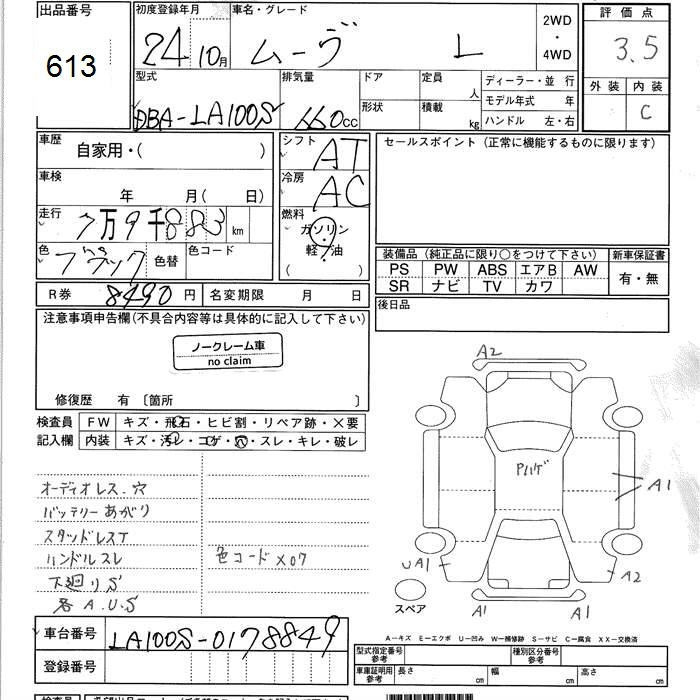 出品番号
613
初度登録年月 車名・グレード
24 10月 ムーヴ L
2WD
・
4WD
評価点
3.5
外装 内装
C
型式 排気量 ドア 定員 人
DBA-LA100S 660cc 形状 積載 kg
ディーラー・並 行
モデル年式 年
ハンドル 左・右
車歴
自家用・( )
車検
年 月( 日)
走行
7万9千883 km
色 ブラック 色替 色コード
シフト AT
冷房 AC
燃料
ガソリン
軽 油
( )
セールスポイント (正常に機能するものに限ります)
装備品 (純正品に限り○をつけて下さい) 新車保証書
PS PW ABS エアB AW 有・無
SR ナビ TV カワ
後日品
R券 8490円 名変期限 月 日
注意事項申告欄(不具合内容等は具体的に記入して下さい)
ノークレーム車
no claim
修復歴 有 〔箇所 〕
検査員 FW キズ・飛石・ヒビ割・リペア跡・×要
記入欄 内装 キズ・汚レ・コゲ・穴・スレ・キレ・破レ
オーディオレス.穴
バッテリーあがり
スタッドレスT
ハンドルスレ
下廻りS
各A.U.S
色コードX07
A2
Pハゲ
A1
UA1
A2
A1 A1
スペア
A-キズ E-エクボ U-凹み W-補修跡 S-サビ C-腐食 XX-交換済
車台番号 LA100S-0178849
登録番号
型式指定番号 参考 種別区分番号 参考
車車証明用 参考 長さ cm 幅 cm 高さ cm